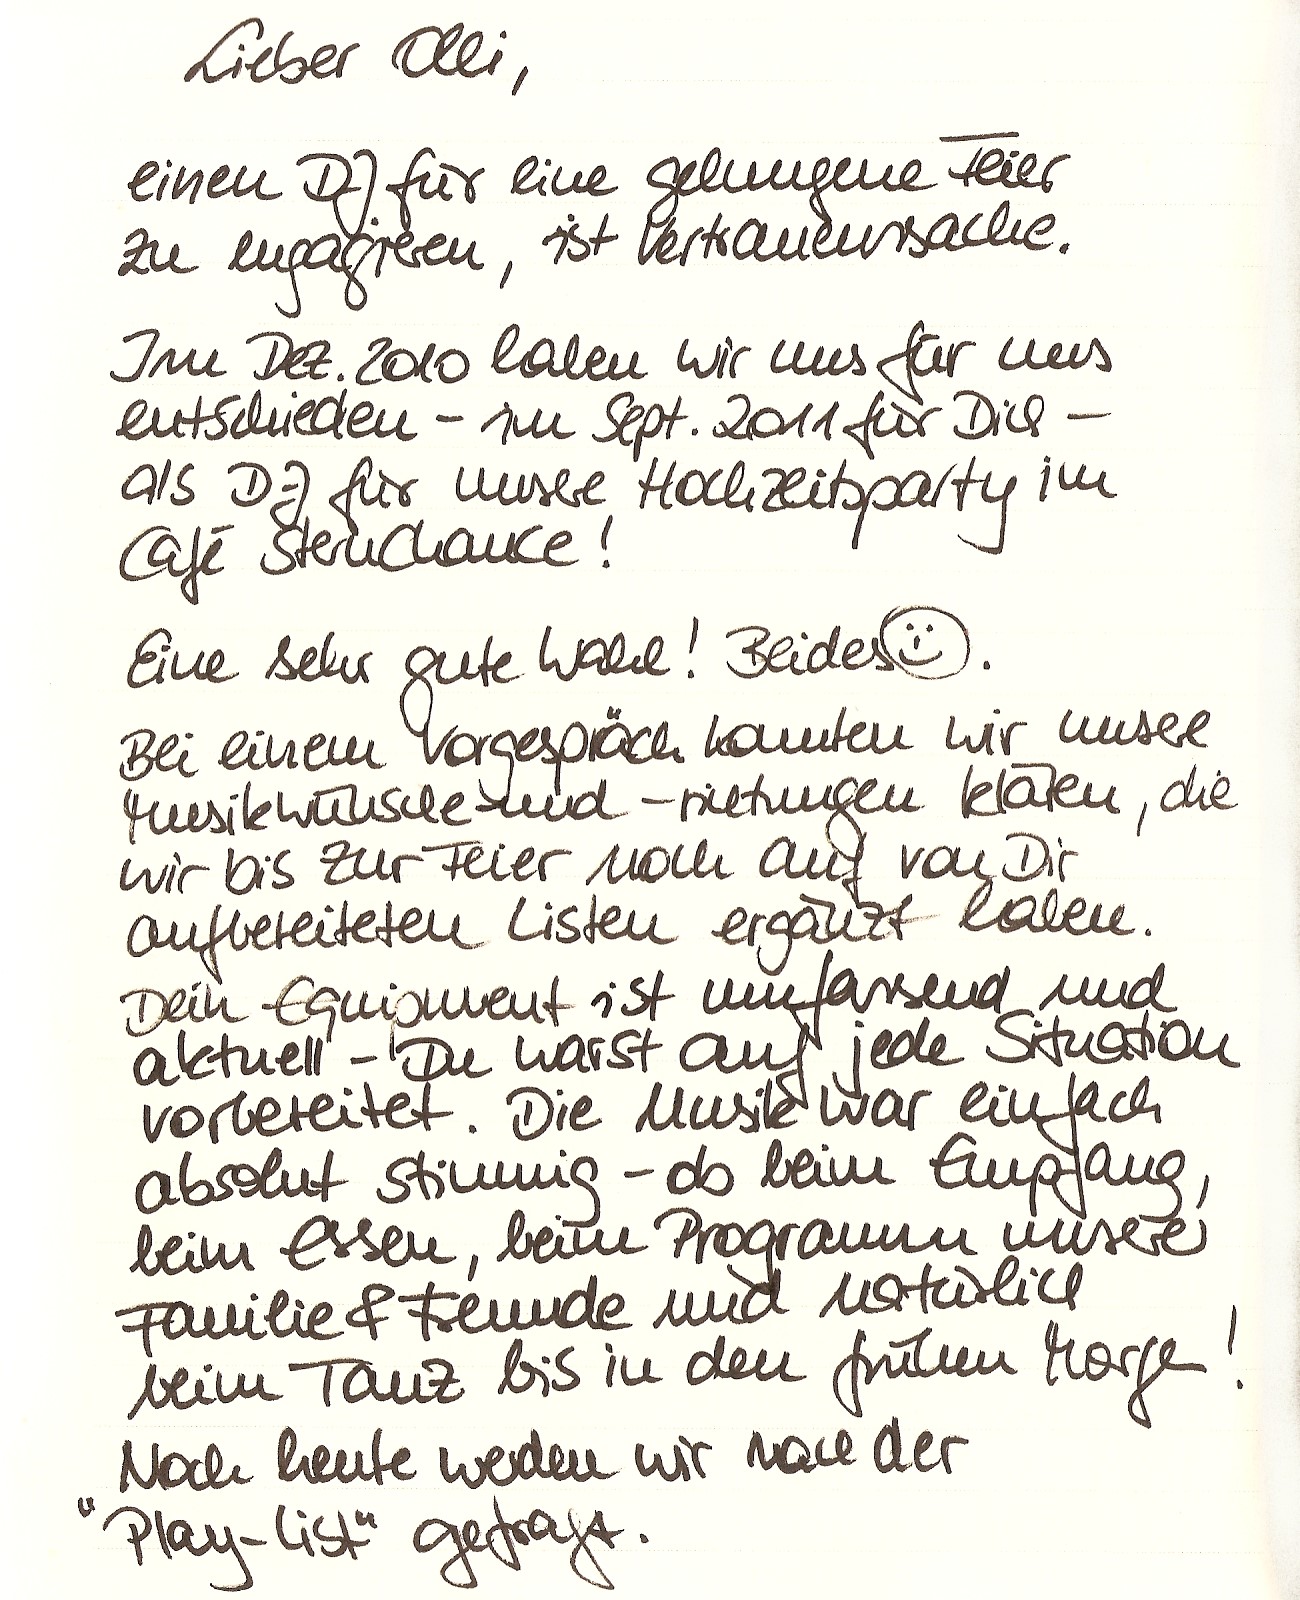 Lieber Olli,
einen DJ für eine gelungene Feier
zu engagieren, ist Vertrauenssache.
Im Dez. 2010 haben wir uns für uns
entschieden – im Sept. 2011 für Dich –
als DJ für unsere Hochzeitsparty im
Café SternChance!
Eine sehr gute Wahl! Beides ☺.
Bei einem Vorgespräch konnten wir unsere
Musikwünsche- und -richtungen klären, die
wir bis zur Feier noch auf von Dir
aufbereiteten Listen ergänzt haben.
Dein Equipment ist umfassend und
aktuell – Du warst auf jede Situation
vorbereitet. Die Musik war einfach
absolut stimmig – ob beim Empfang,
beim Essen, beim Programm unserer
Familie & Freunde und natürlich
beim Tanz bis in den frühen Morgen!
Noch heute werden wir nach der
"Play-List" gefragt.